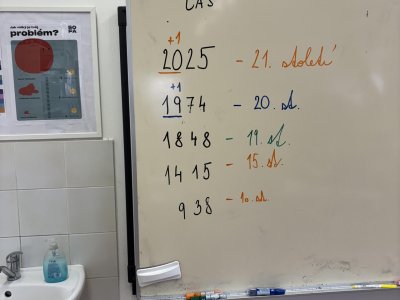 ČAS
+1
2025 - 21. století
+1
1974 - 20. st.
1848 - 19. st.
1415 - 15. st.
938 - 10. st.
problém?
SO
PA